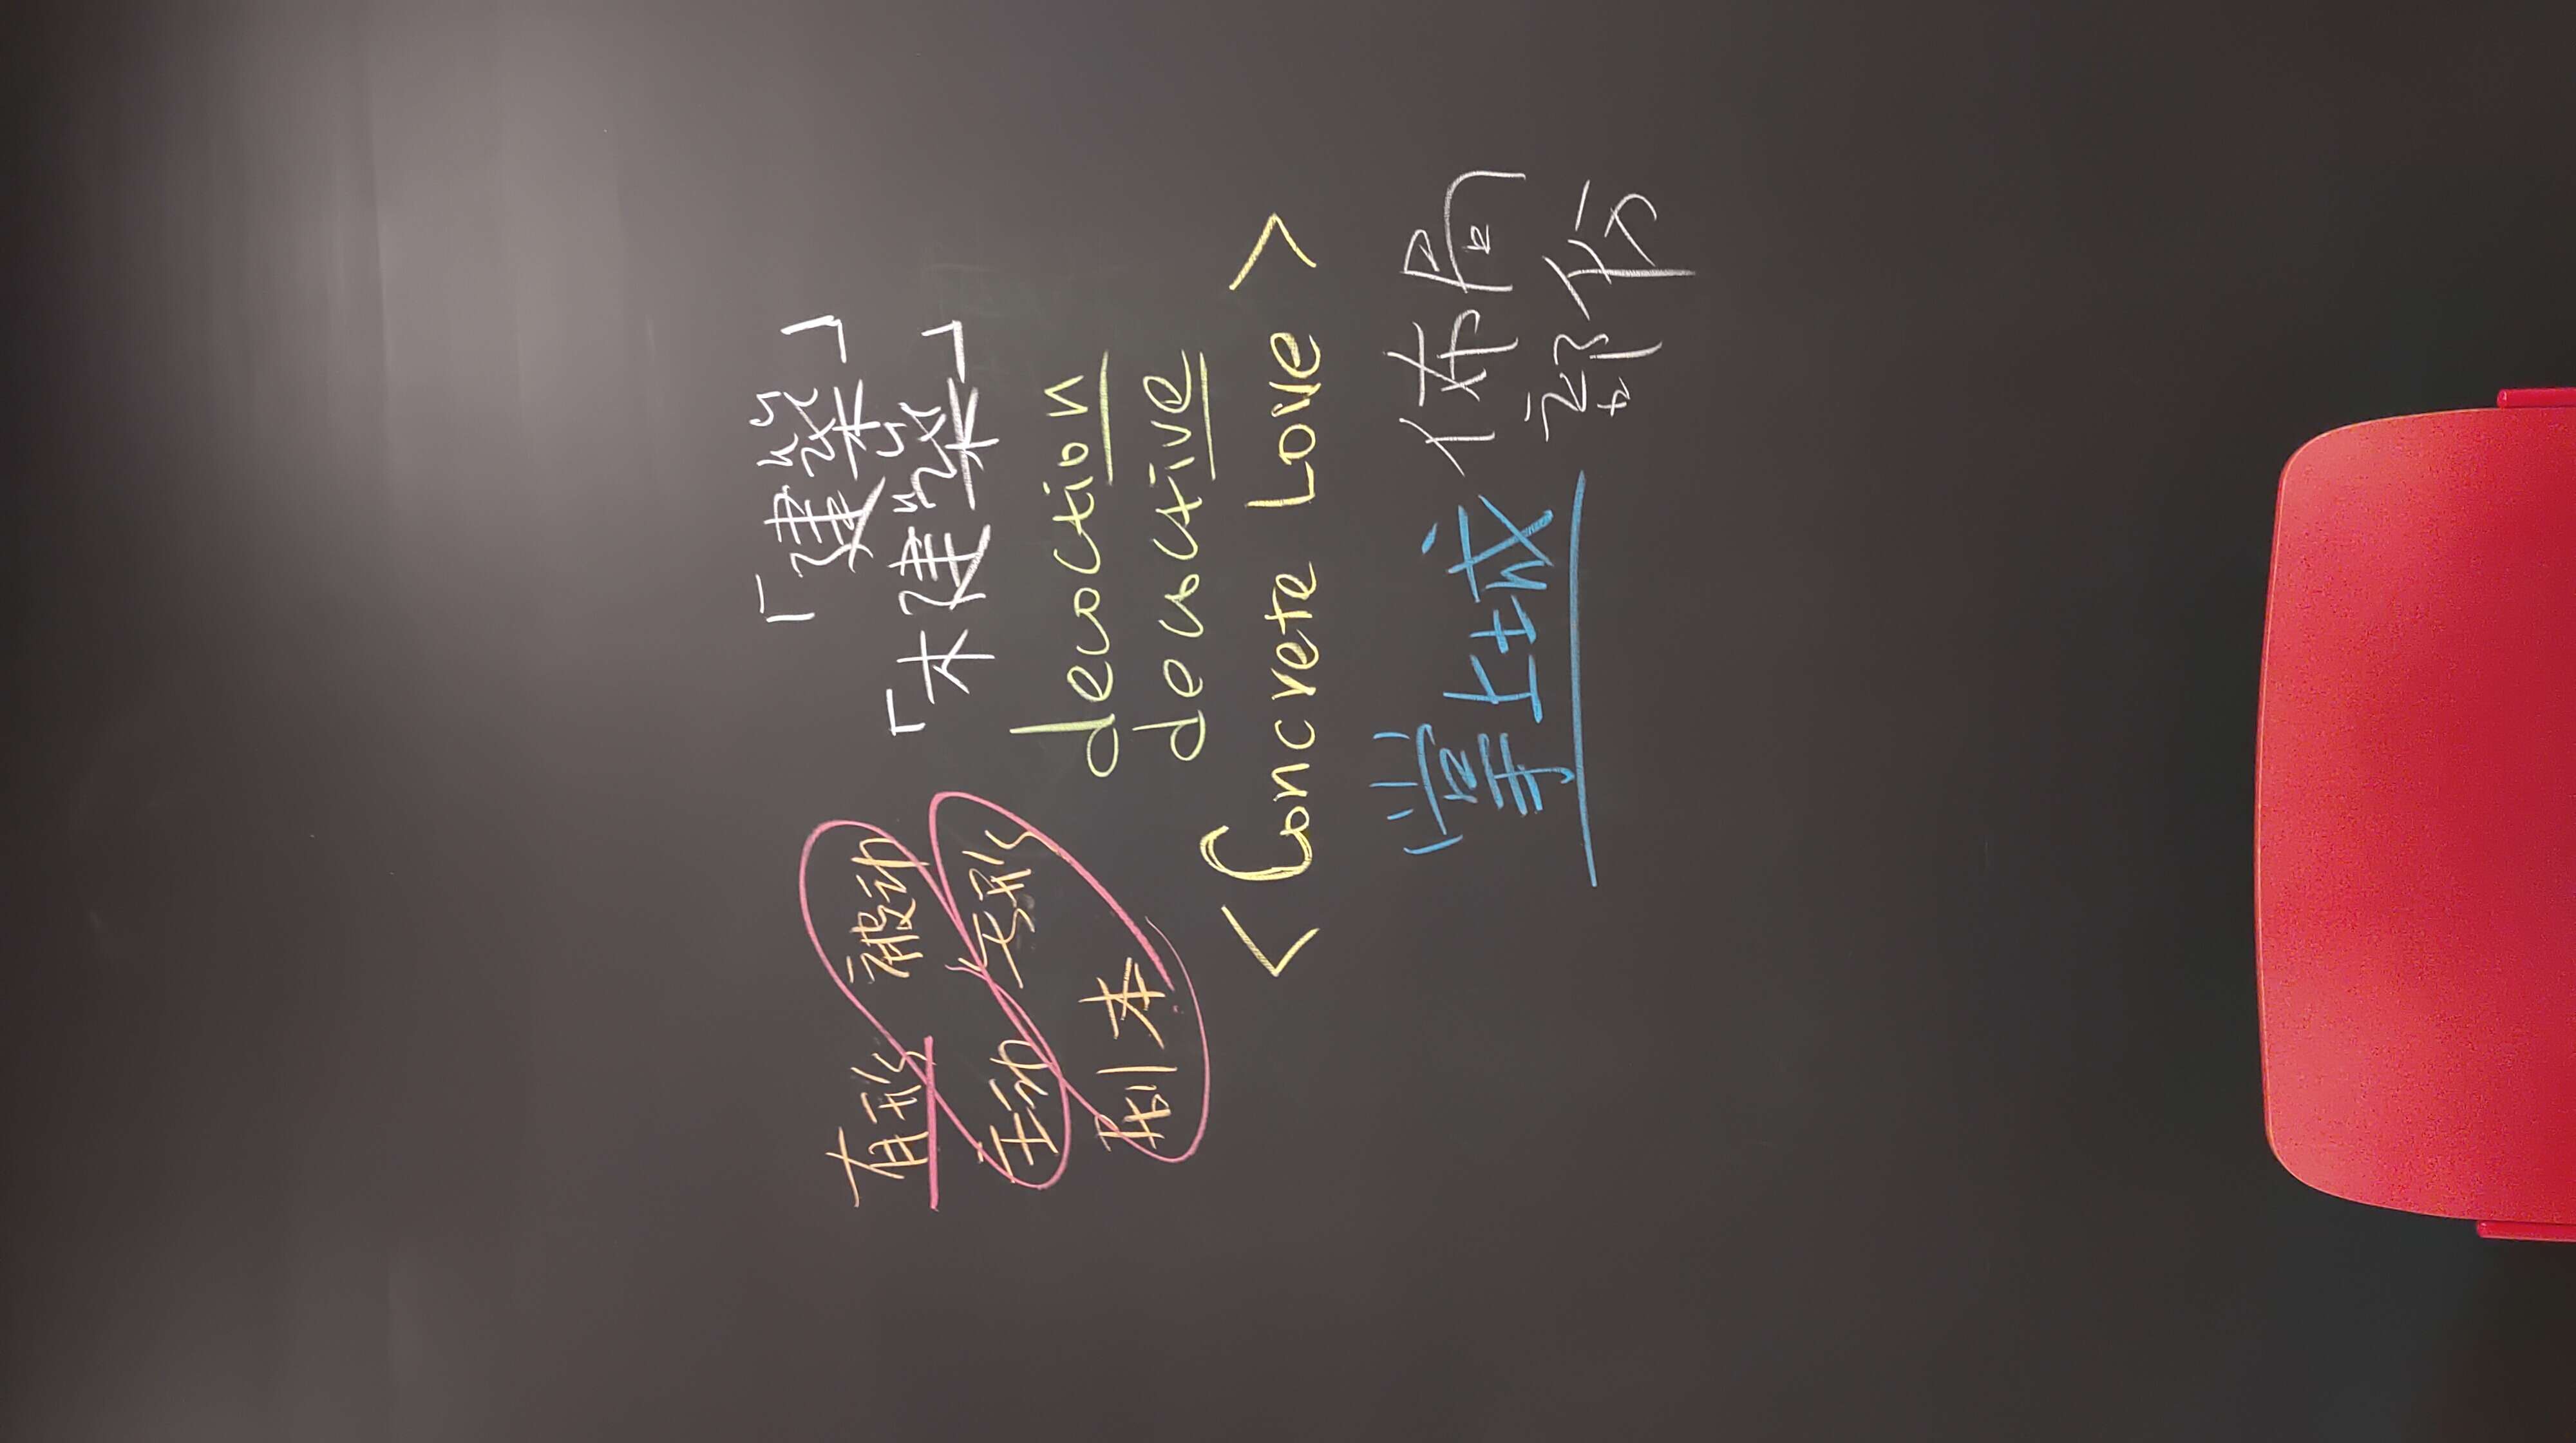 有形 被动
主动 无形
剧本
「建築」
「木建築」
decoction
decoctive
<Concrete Love>
掌上城
佈局
部份